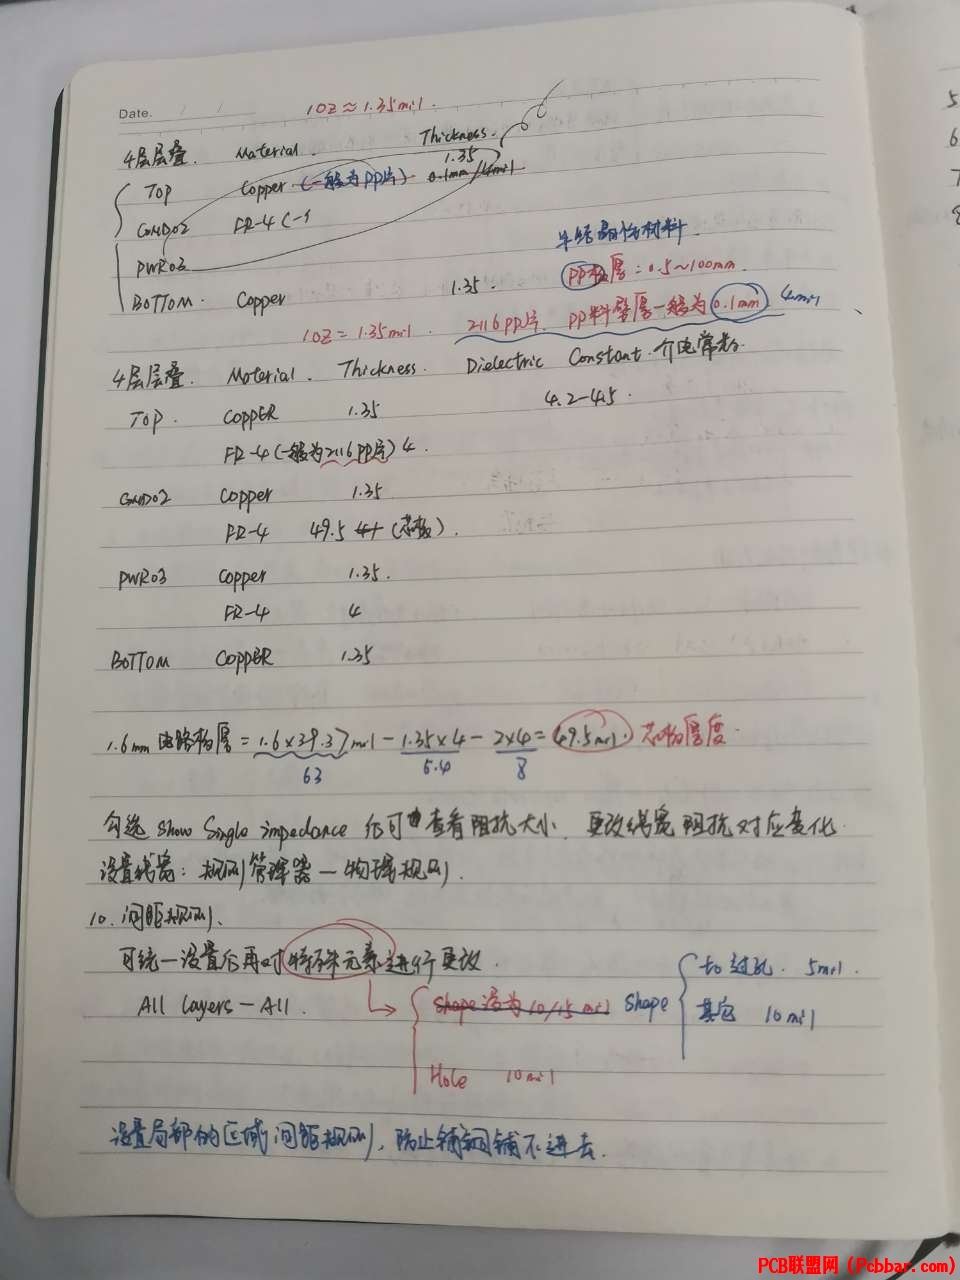 Date. / /
1OZ≈1.35mil.
4层层叠. Material. Thickness.
1.35
TOP Copper (一般为PP片) 0.1mm/4mil
GND02 FR-4 (一
半结晶性材料
PWR03
PP板厚:0.5~100mm.
BOTTOM. Copper 1.35.
1OZ=1.35mil. 2116PP片. PP料壁厚一般为0.1mm. 4mil
4层层叠. Material. Thickness. Dielectric Constant.介电常数.
TOP. COPPER 1.35 4.2-4.5.
FR-4(一般为2116PP片)4.
GND02 Copper 1.35
FR-4 49.5 (芯板).
PWR03 Copper 1.35.
FR-4 4
BOTTOM COPPER 1.35
1.6mm 电路板厚=1.6×39.37mil-1.35×4-2×4=49.5mil. 芯板厚度.
63 5.4 8
勾选 Show Single impedance 后可查看阻抗大小. 更改线宽阻抗对应变化.
设置线宽:规则管理器—物理规则.
10.间距规则.
可统一设置后再对特殊元素进行更改.
All Layers-All. Shape设为10/15mil Shape to过孔. 5mil.
其它 10mil
Hole 10mil
设置局部的区域间距规则,防止铺铜铺不进去.
5
6
7
8
PCB联盟网(Pcbbar.com)